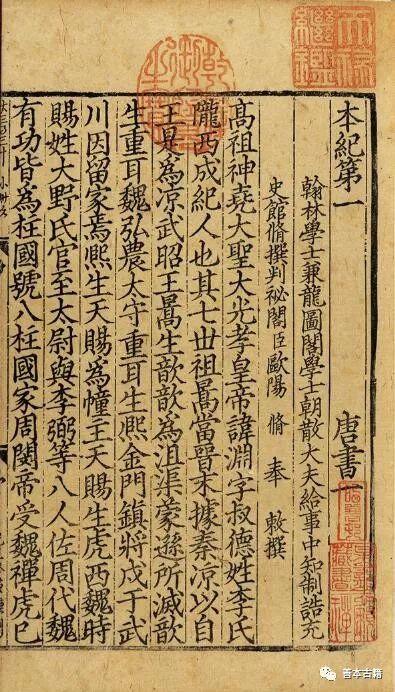 天祿繼鑑
乾隆御覽之寶
本紀第一 唐書一
翰林學士兼龍圖閣學士朝散大夫給事中知制誥充
史館脩撰判祕閣臣歐陽 脩 奉 敕撰
髙祖神堯大聖大光孝皇帝諱淵字叔德姓李氏
隴西成紀人也其七世祖暠當晉末據秦涼以自
王是爲涼武昭王暠生歆歆爲沮渠蒙遜所滅歆
生重耳魏弘農太守重耳生熈金門鎮將戍于武
川因留家焉熈生天賜爲幢主天賜生虎西魏時
賜姓大野氏官至太尉與李弼等八人佐周代魏
有功皆爲柱國號八柱國家周閔帝受魏禪虎已
善本古籍